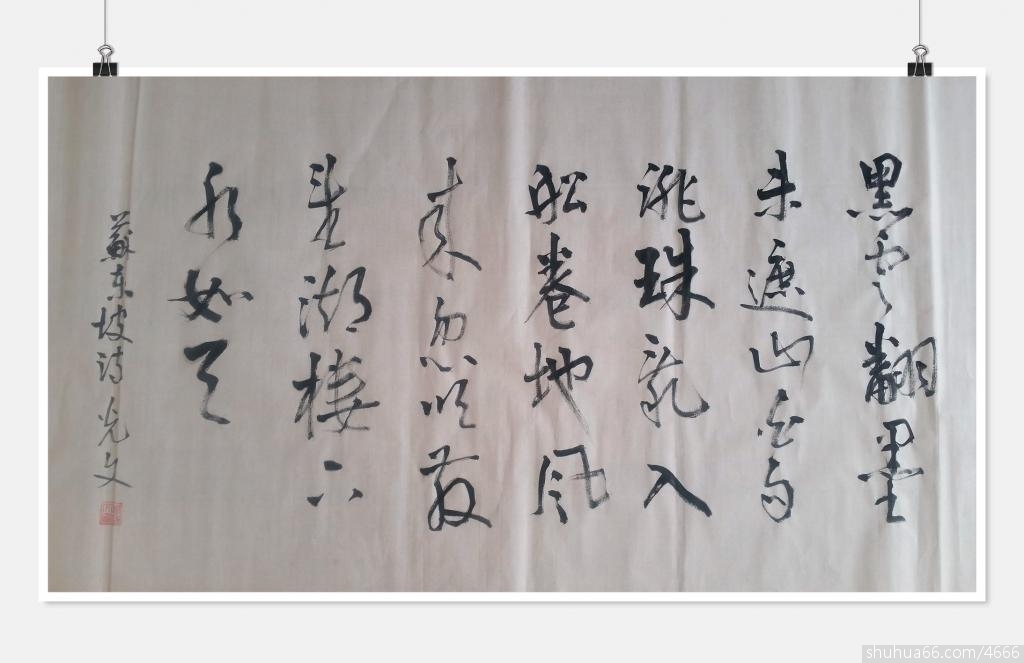 黑雲翻墨
未遮山白雨
跳珠亂入
船卷地风
来忽吹散
望湖樓下
水如天
蘇東坡诗 光文
shuhua66.com/4666